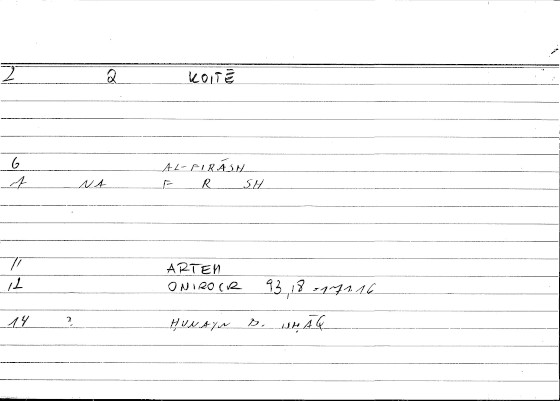 2 2 KOITĒ
6 AL-FIRĀSH
1 NA F R SH
11 ARTEM
12 ONIROCR 93,18
14 ? ḤUNAYN B. ISḤĀQ